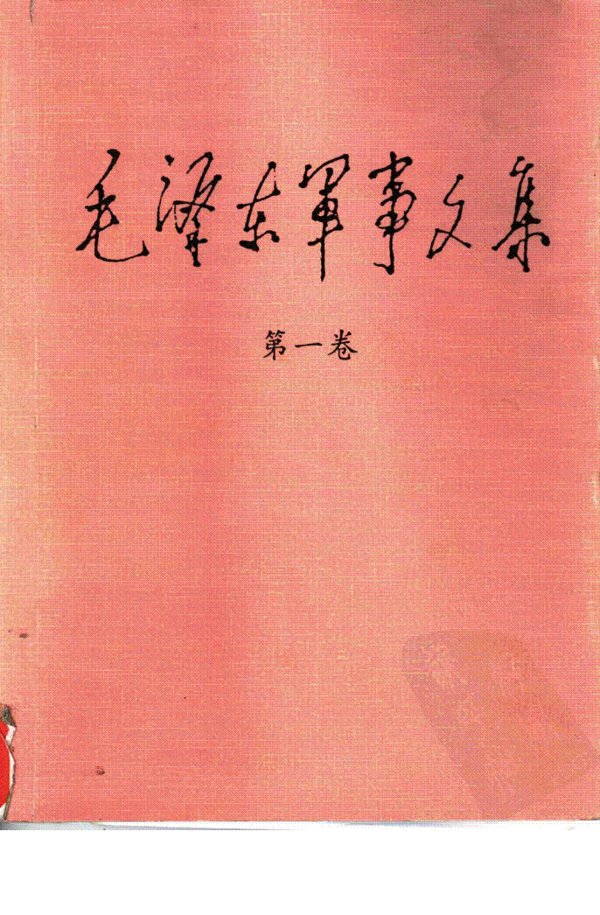 毛泽东军事文集
第一卷